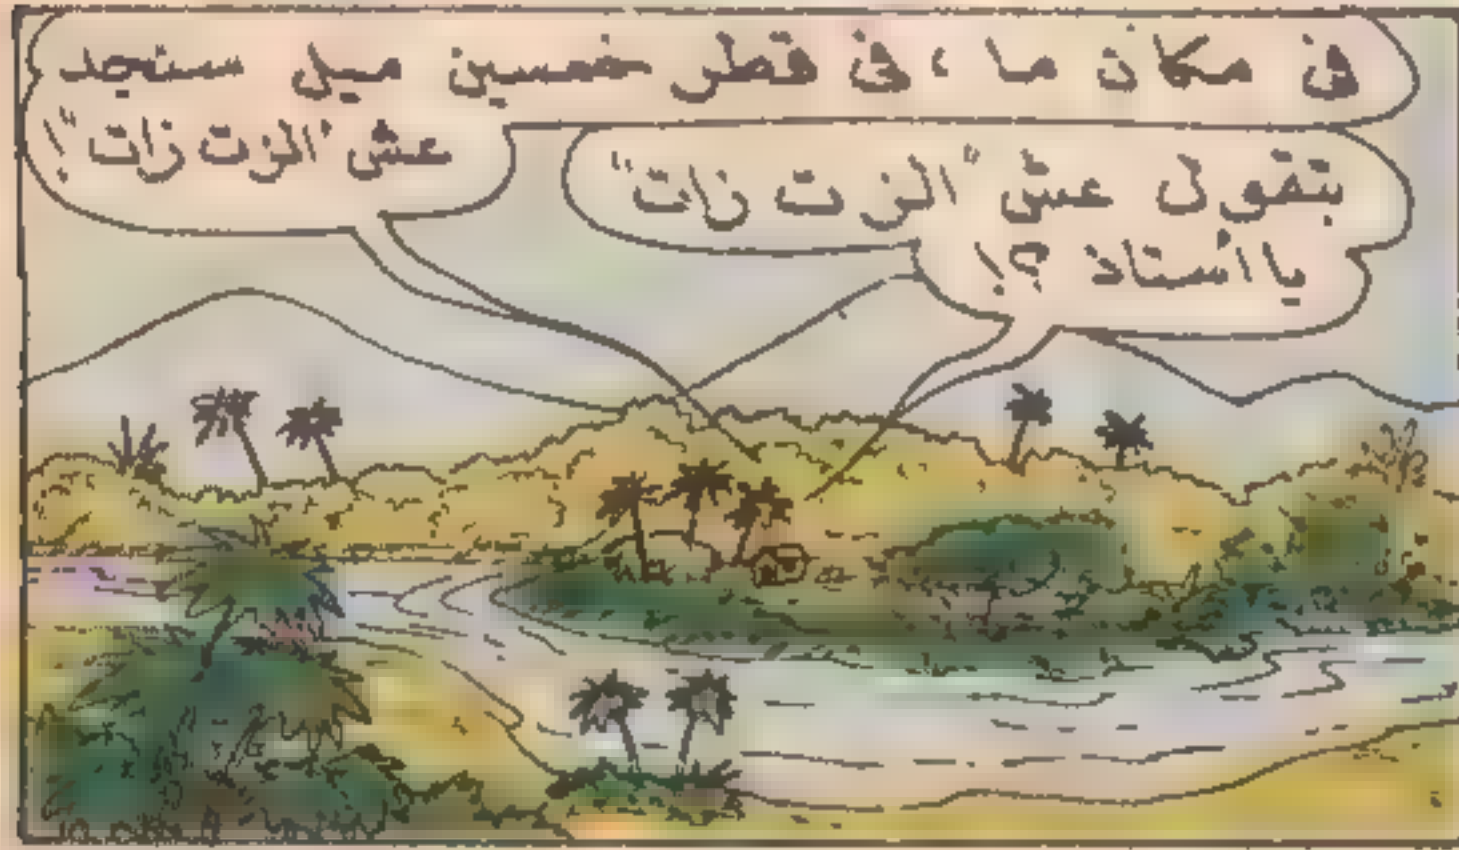 فى مكان ما ، فى قطر خمسين ميل سنجد
عش "الزت زات" !
بتقول عش "الزت زات"
يا أستاذ ؟!